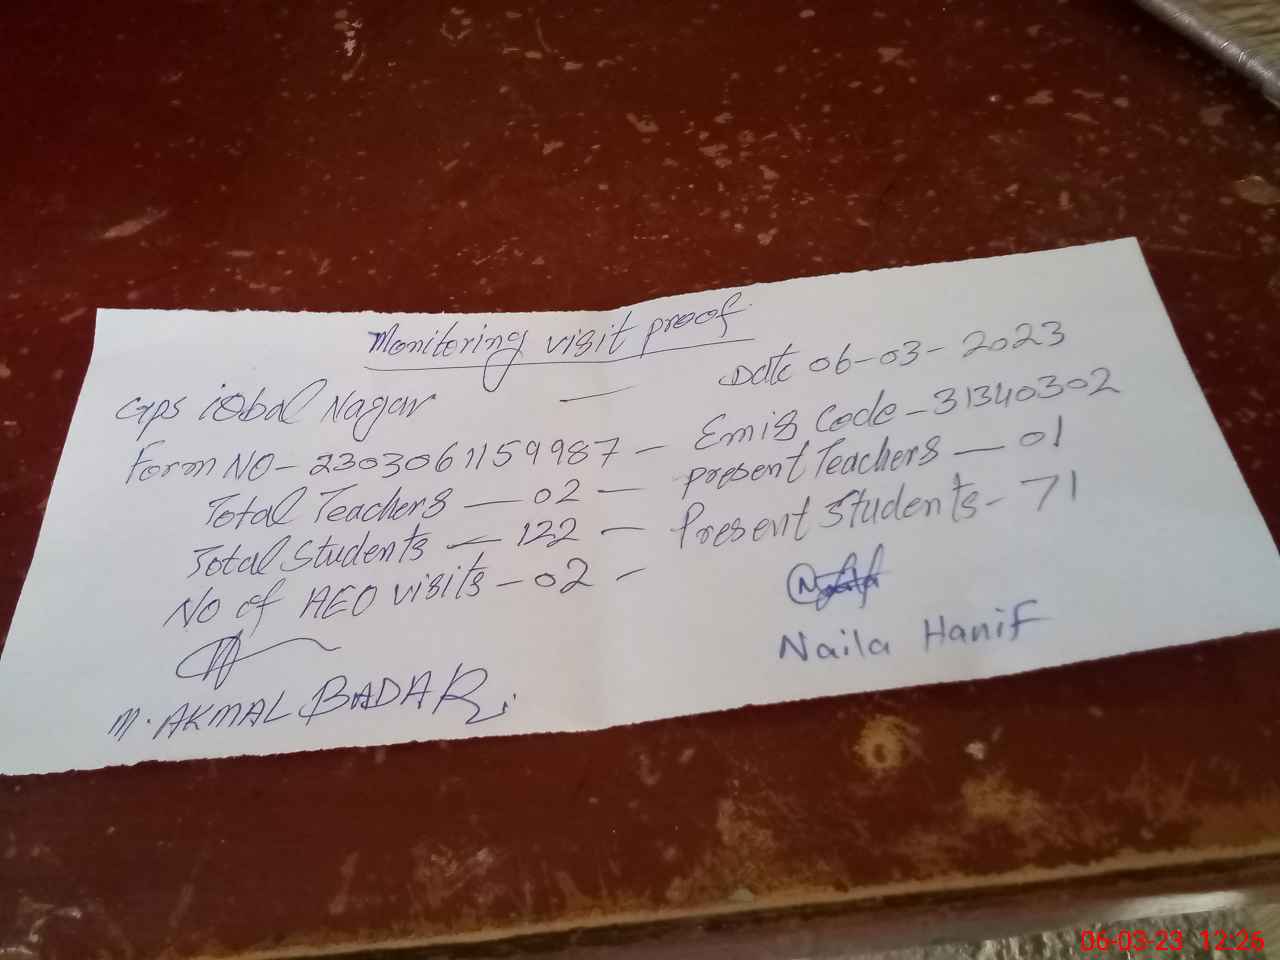 Monitoring visit proof
GPS iqbal Nagar — Date 06-03-2023
Form NO- 2303061159987 - Emis Code - 31340302
Total Teachers — 02 — present Teachers — 01
Total Students — 122 — Present Students - 71
NO of AEO visits - 02 -
M. AKMAL BADAR.
Naila Hanif
06-03-23 12:26